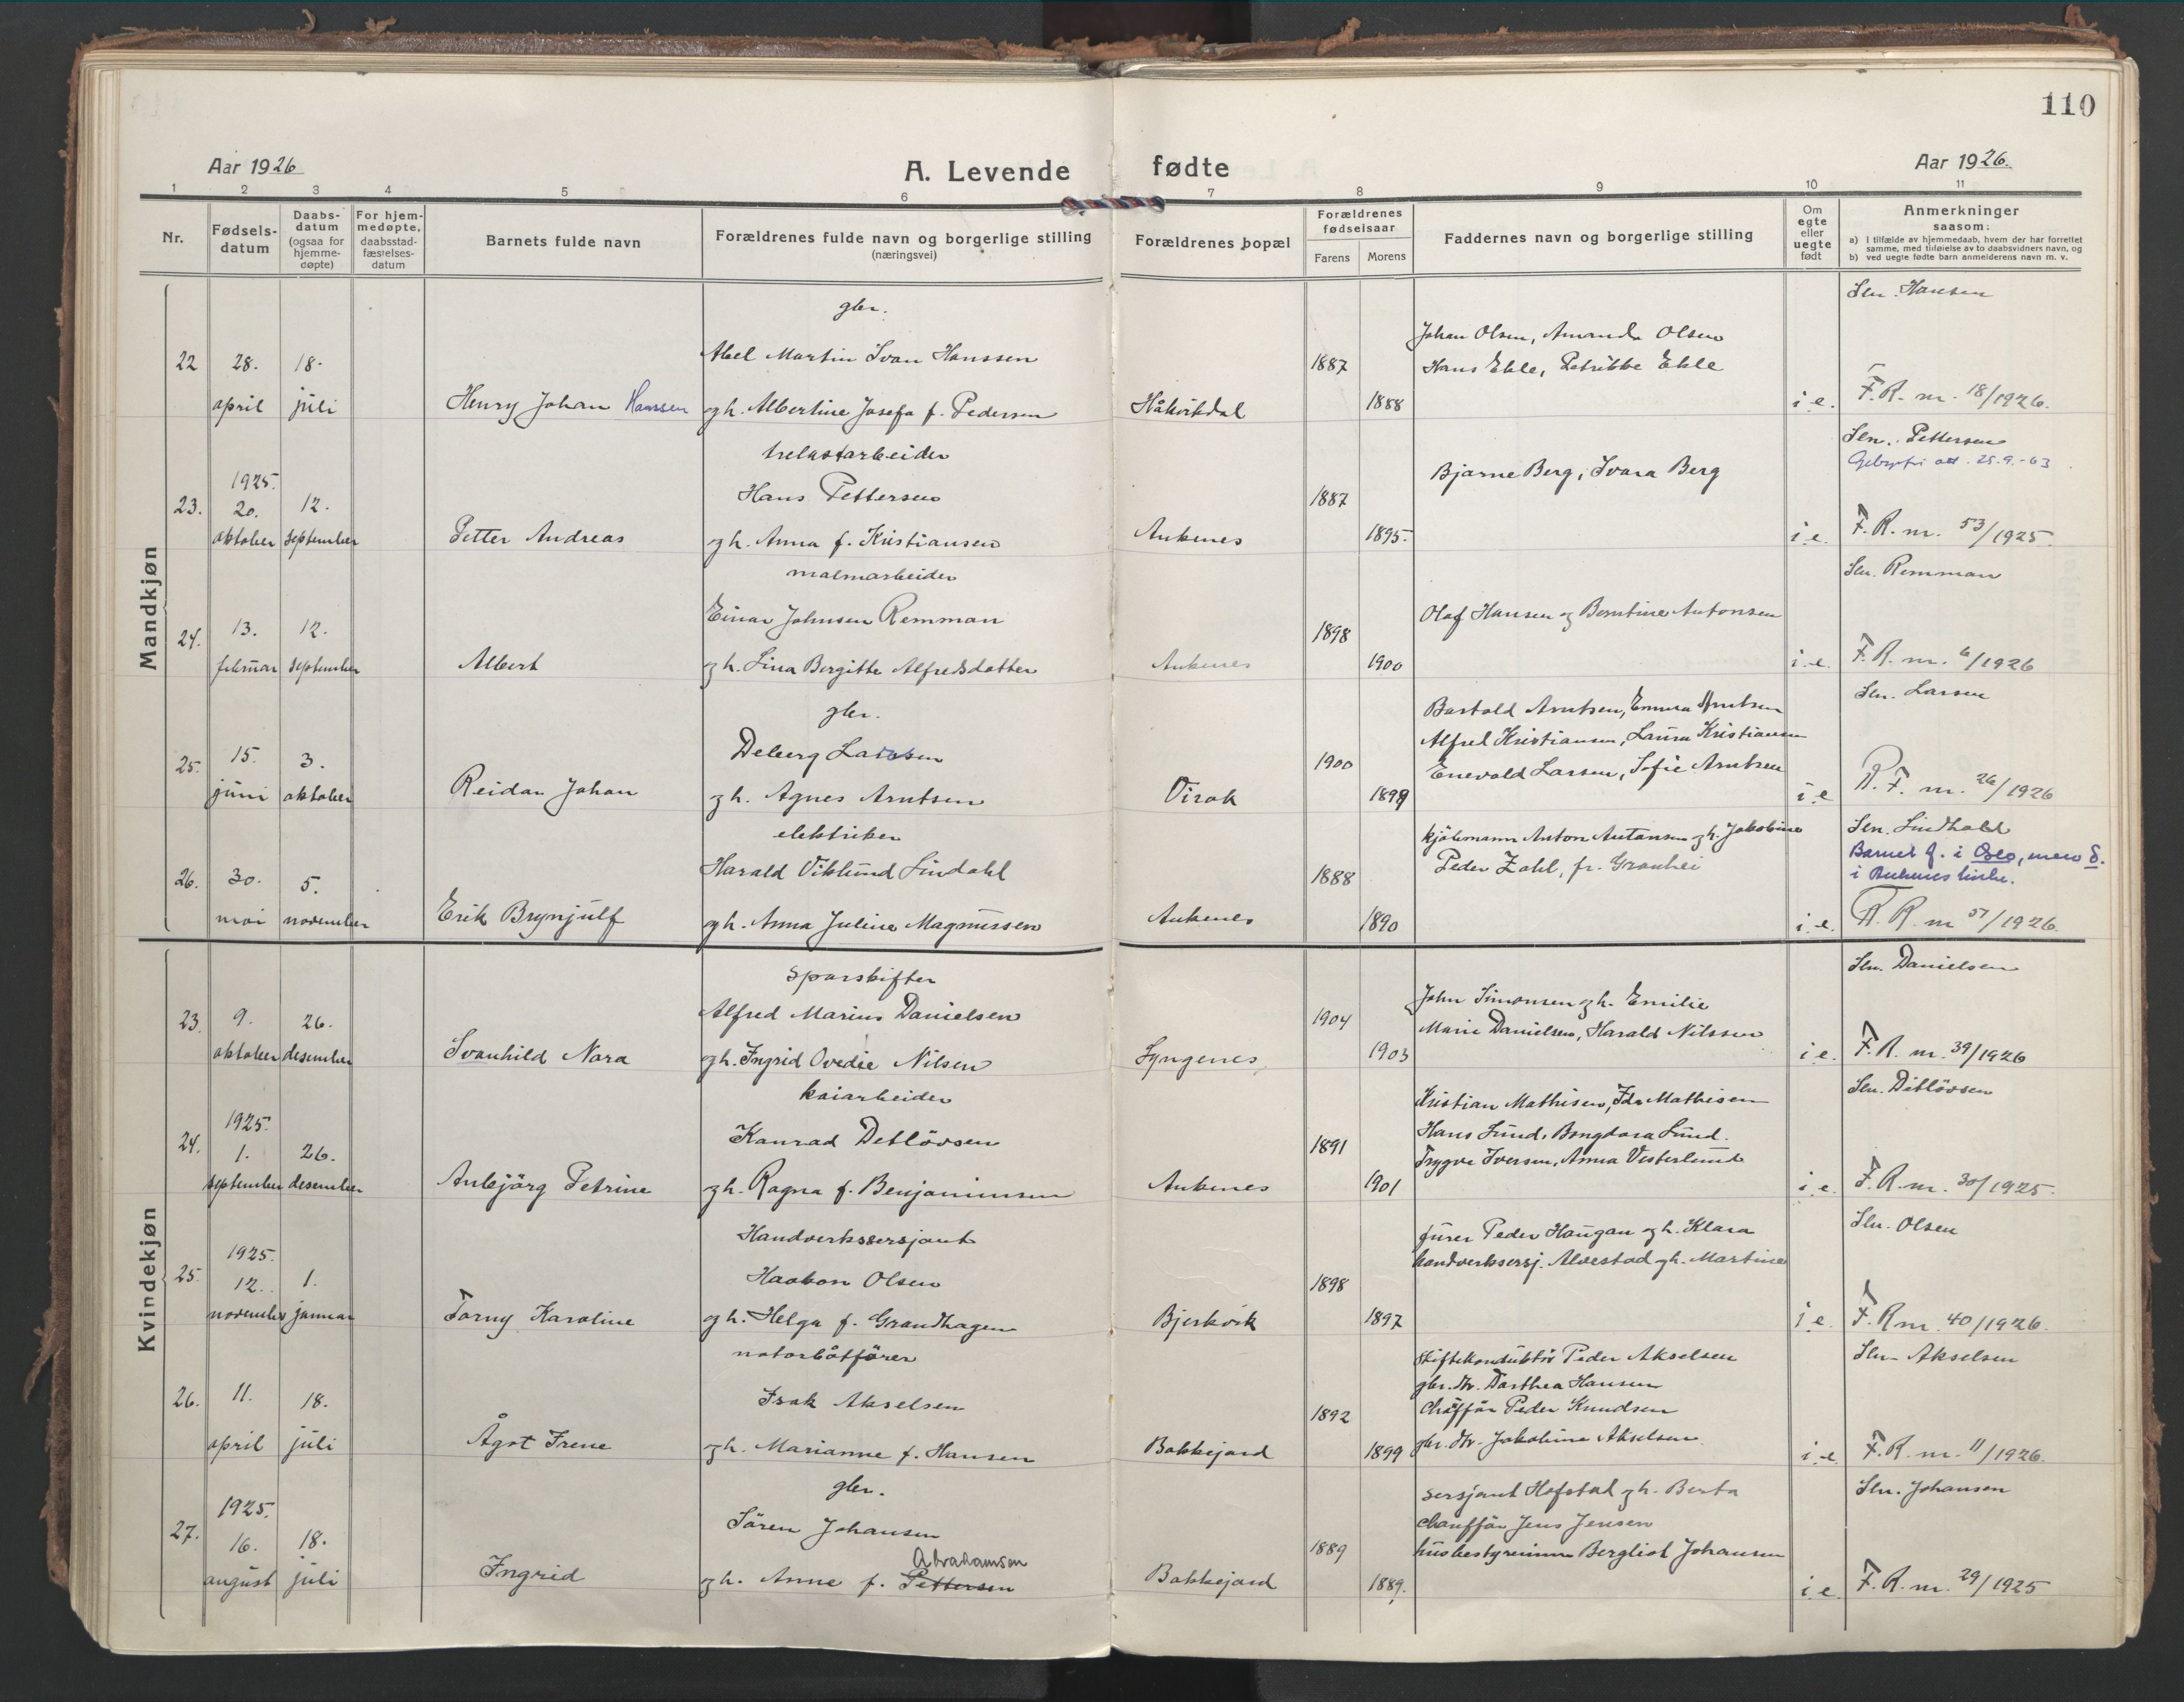 110
Aar 1926
A. Levende fødte
Aar 1926.
1 2 3 4 5 6 7 8 9 10 11
Nr.
Fødsels-
datum
Daabs-
datum
(ogsaa for
hjemme-
døpte)
For hjem-
medøpte,
daabsstad-
fæstelses-
datum
Barnets fulde navn
Forældrenes fulde navn og borgerlige stilling
(næringsvei)
Forældrenes bopæl
Forældrenes
fødselsaar
Farens Morens
Faddernes navn og borgerlige stilling
Om
egte
eller
uegte
født
Anmerkninger
saasom:
a) i tilfælde av hjemmedaab, hvem der har forrettet
samme, med tilføielse av to daabsvidners navn, og
b) ved uegte fødte barn anmelderens navn m. v.
Mandkjøn
22
28.
april
18.
juli
Henry Johan Hanssen
gbr.
Abel Martin Ivan Hanssen
og h. Albertine Josefa f. Pedersen
Håkvikdal
1887
1888
Johan Olsen, Amanda Olsen
Hans Ekle, Petrikke Ekle
i. e.
Sln. Hansen
F. R. nr. 18/1926.
23.
1925.
20.
oktober
12.
september
Petter Andreas
trelastarbeider
Hans Pettersen
og h. Anna f. Kristiansen
Ankenes
1887
1895.
Bjarne Berg, Ivara Berg
i. e.
Sln. Pettersen
Gebyrfri att. 25.9.-63
F. R. nr. 53/1925.
24.
13.
februar
12.
september
Albert
malmarbeider
Einar Johnsen Remman
og h. Lina Bergitte Alfredsdatter
Ankenes
1898
1900
Olaf Hansen og Berntine Antonsen
i. e.
Sln. Remman
F. R. nr. 6/1926
25.
15.
juni
3.
oktober
Reidar Johan
gbr.
Deberg Larssen
og h. Agnes Arntsen
Virak
1900
1899
Bartold Arntsen, Emma Arntsen
Alfred Kristiansen, Laura Kristiansen
Enevold Larsen, Sofie Arntsen
i. e
Sln. Larsen
R. F. nr. 26/1926
26.
30.
mai
5.
november
Erik Brynjulf
elektriker
Harald Viklund Lindahl
og h. Anna Juline Magnussen
Ankenes
1888
1890
Anton Antonsen og h. Jakobine
Peder Zahl, fr. Granhei
i. e.
Sln. Lindhahl
Barnet f. i Oslo, men d.
i Ankenes kirke.
F. R. nr 51/1926.
Kvindekjøn
23.
9.
oktober
26.
desember
Svanhild Nora
Sporskifter
Alfred Marius Danielsen
og h. Ingrid Ovedie Nilsen
Lyngenes
1904
1903
John Simonsen og h. Emilie
Marie Danielsen, Harald Nilssen
i. e.
Sln. Danielsen
F. R. nr. 39/1926
24.
1925.
1.
september
26.
desember
Anbjörg Petrine
kaiarbeider
Konrad Detlövsen
og h. Ragna f. Benjaminsen
Ankenes
1891
1901
Kristian Mathisen, Ida Mathisen
Hans Lund, Bongdora Lund.
Trygve Iversen, Anna Vesterlund
i. e.
Sln. Ditlövsen
F. R. nr. 30/1925.
25.
1925.
12.
november
1.
januar
Torny Karoline
Handverkssersjant
Haakon Olsen
og h. Helga f. Grandhagen
Bjerkvik
1898
1897
furer Peder Haugan og h. Klara
handverksersj. Alvestad og h. Martine
i. e.
Sln. Olsen
F. R nr. 40/1926.
26.
11.
april
18.
juli
Ågot Irene
motorbåtförer
Isak Akselsen
og h. Marianne f. Hansen
Bakkejord
1892
1899
Skiftekonduktör Peder Akselsen
gbr. Dorthea Hansen
Chafför Peder Knudsen
gbr. Jakobine Akselsen
i. e.
Sln. Akselsen
F. R. nr. 11/1926.
27.
1925.
16.
august
18.
juli
Ingrid
gbr.
Sören Johansen
Abrahamsen
og h. Anne f. Pettersen
Bakkejord
1889
1889.
Sersjant Hofstad og h. Berta
Chaufför Jens Jensen
husbestyrerinne Bergliot Johansen
i. e.
Sln. Johansen
F. R. nr. 29/1925